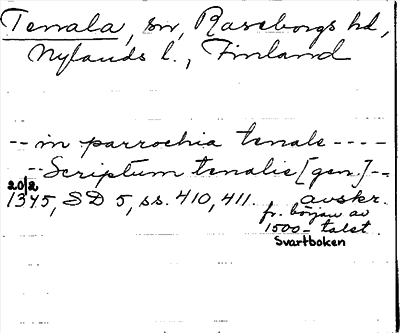 Tenala, sn, Raseborgs hd,
Nylands l., Finland
-- in parrochia tenale ----
-- Scriptum tenalis [gen.] --
20/2
1345, SD 5, ss. 410, 411. avskr.
fr. början av
1500-talet.
Svartboken